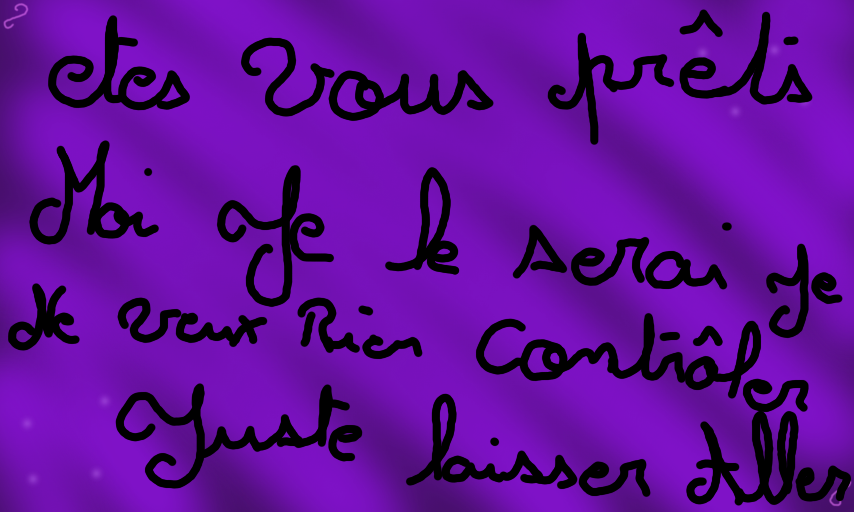 etes vous prêts
Moi Je le serai Je
Ne veux Rien Contrôler
Juste laisser Aller